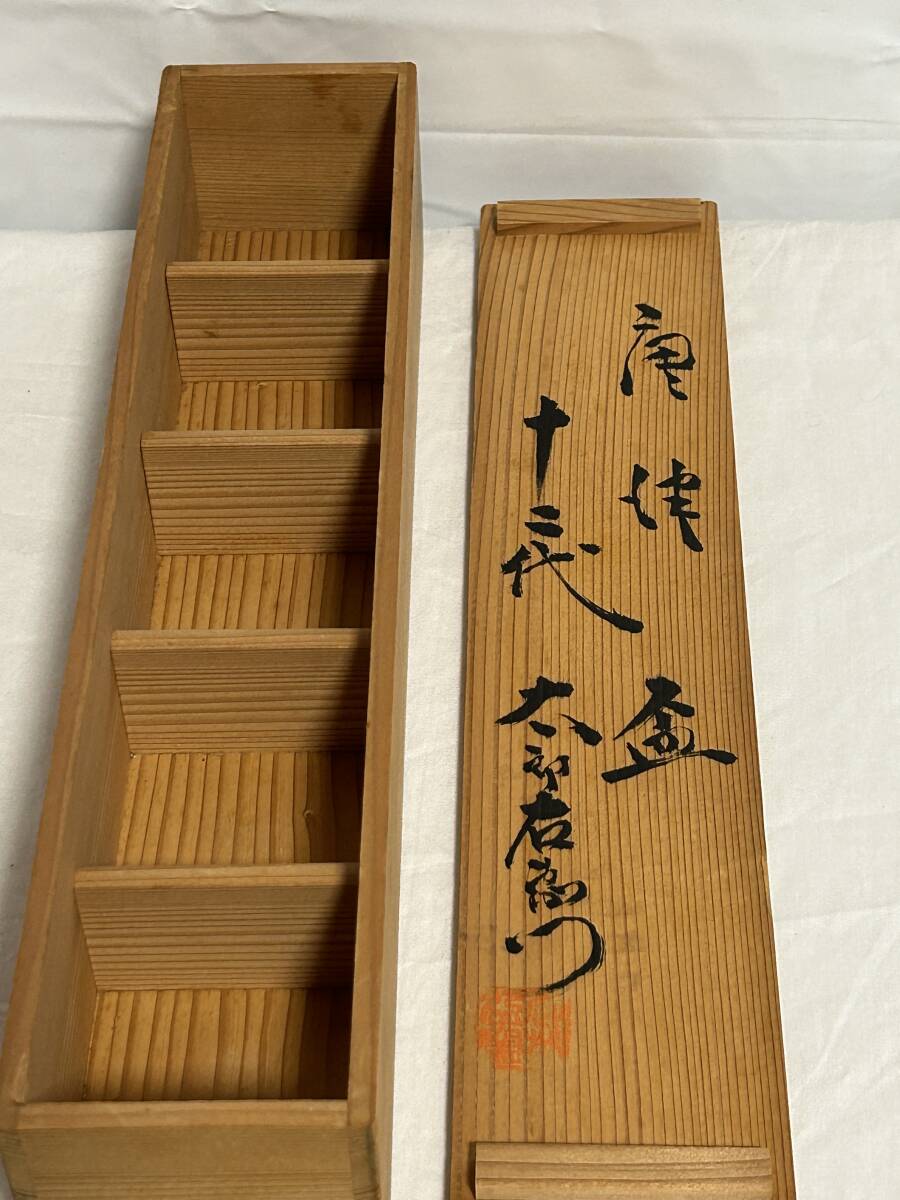 唐津 盃
十二代 太郎右衛門